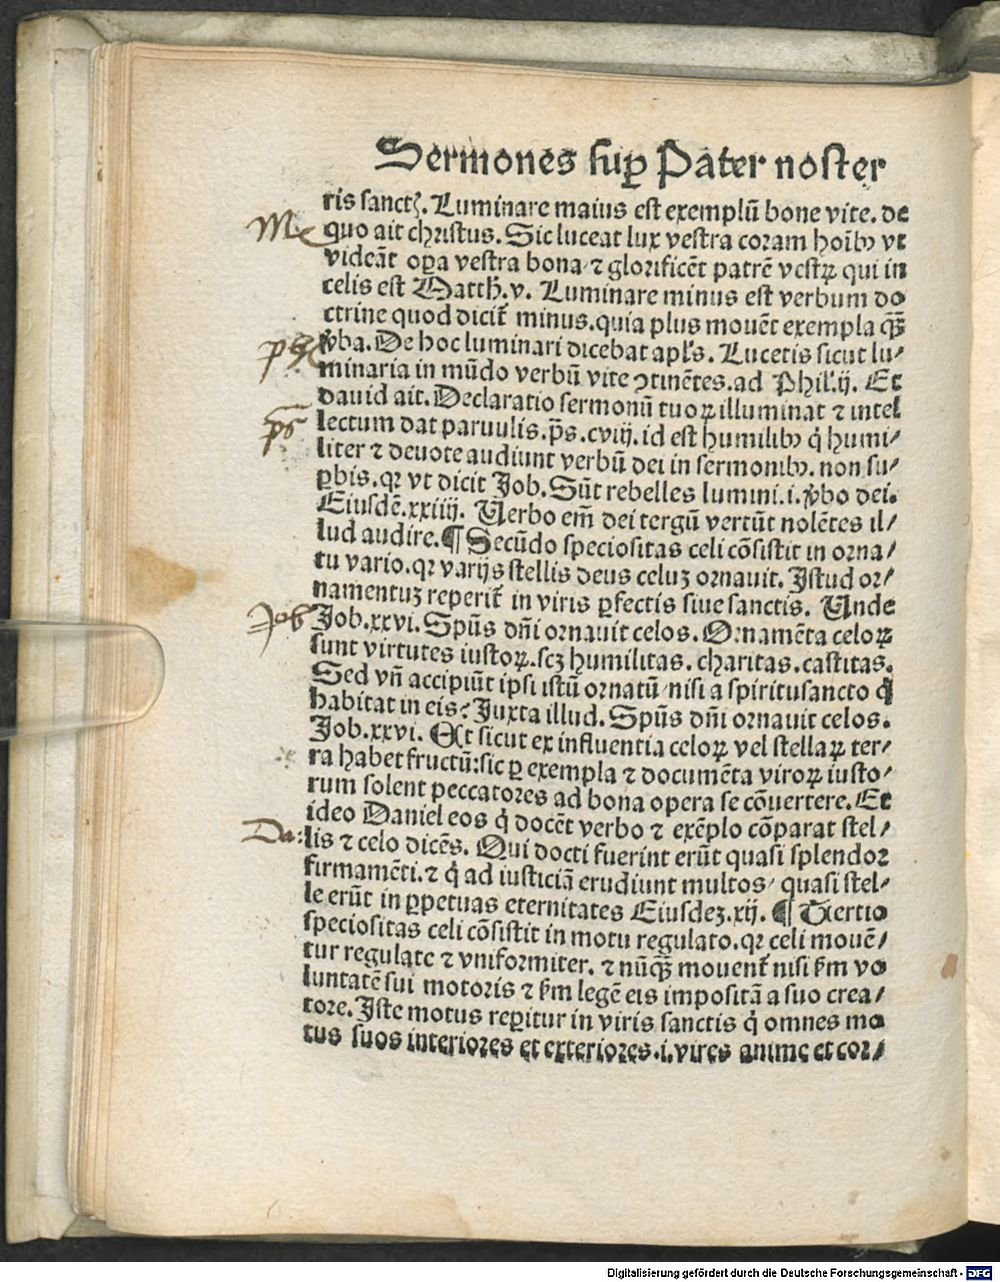 Sermones suꝑ Pater noster
ris sanctꝫ. Luminare maius est exemplū bone vite. de
Mͤ
quo ait christus. Sic luceat lux vestra coram hoībꝫ vt
videāt oꝑa vestra bona ⁊ glorificēt patrē vestrꝝ qui in
celis est Matth. v. Luminare minus est verbum do
ctrine quod dicit̄ minus. quia plus mouēt exempla qꝫ̄
v̓ba. De hoc luminari dicebat apl's. Lucetis sicut lu⸗
minaria in mūdo verbū vite ꝯtinētes. ad Phil'. ij. Et
dauid ait. Declaratio sermonū tuoꝝ illuminat ⁊ intel
p̄s
lectum dat paruulis. p̄s. cviij. id est humilibꝫ q̇ humi⸗
liter ⁊ deuote audiunt verbū dei in sermonibꝫ. non su⸗
ꝑbis. qꝛ vt dicit Job. Sūt rebelles lumini. i. v̓bo dei.
Eiusdē. xxiiij. Uerbo em̄ dei tergū vertūt nolētes il⸗
lud audire. ¶ Secūdo speciositas celi cōsistit in orna⸗
tu vario. qꝛ varijs stellis deus celuꝫ ornauit. Istud or⸗
namentuꝫ reperit̄ in viris ꝑfectis siue sanctis. Unde
Job
Job. xxvi. Spūs dñi ornauit celos. Ornamēta celoꝝ
sunt virtutes iustoꝝ. scꝫ humilitas. charitas. castitas.
Sed vn̄ accipiūt ipsi istū ornatū nisi a spiritusancto q̇
habitat in eis? Juxta illud. Spūs dñi ornauit celos.
Job. xxvi. Et sicut ex influentia celoꝝ vel stellaꝝ ter⸗
ra habet fructū: sic ꝑ exempla ⁊ documēta viroꝝ iusto⸗
rum solent peccatores ad bona opera se cōuertere. Et
ideo Daniel eos q̇ docēt verbo ⁊ exēplo cōparat stel⸗
Da:
lis ⁊ celo dicēs. Qui docti fuerint erūt quasi splendor
firmamēti. ⁊ q̇ ad iusticiā erudiunt multos quasi stel⸗
le erūt in ꝑpetuas eternitates Eiusdeꝫ. xij. ¶ Tertio
speciositas celi cōsistit in motu regulato. qꝛ celi mouē⸗
tur regulate ⁊ vniformiter. ⁊ nūqꝫ̄ mouent̄ nisi ẜm vo
luntatē sui motoris ⁊ ẜm legē eis impositā a suo crea⸗
tore. Iste motus reꝑitur in viris sanctis q̇ omnes mo
tus suos interiores et exteriores. i. vires anime et cor⸗
Digitalisierung gefördert durch die Deutsche Forschungsgemeinschaft - DFG